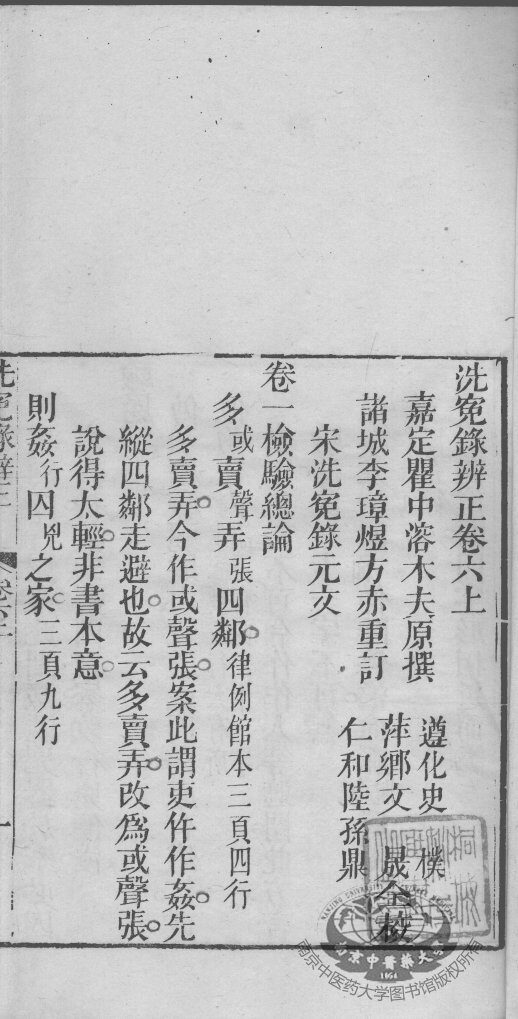 洗冤錄辨正卷六上
嘉定瞿中溶木夫原撰
遵化史 樸
諸城李璋煜方赤重訂
萍鄉文 晟仝校
仁和陸孫鼎
宋洗冤錄元文
卷一檢驗總論
多或賣聲弄張四鄰律例館本三頁四行
多賣弄今作或聲張案此謂吏仵作姦先
縱四鄰走避也故云多賣弄改為或聲張
說得太輕非書本意
則姦行囚兇之家三頁九行
洗冤錄辨正
卷六上
一
南京中醫藥大學
1954
南京中医药大学图书馆版权所有